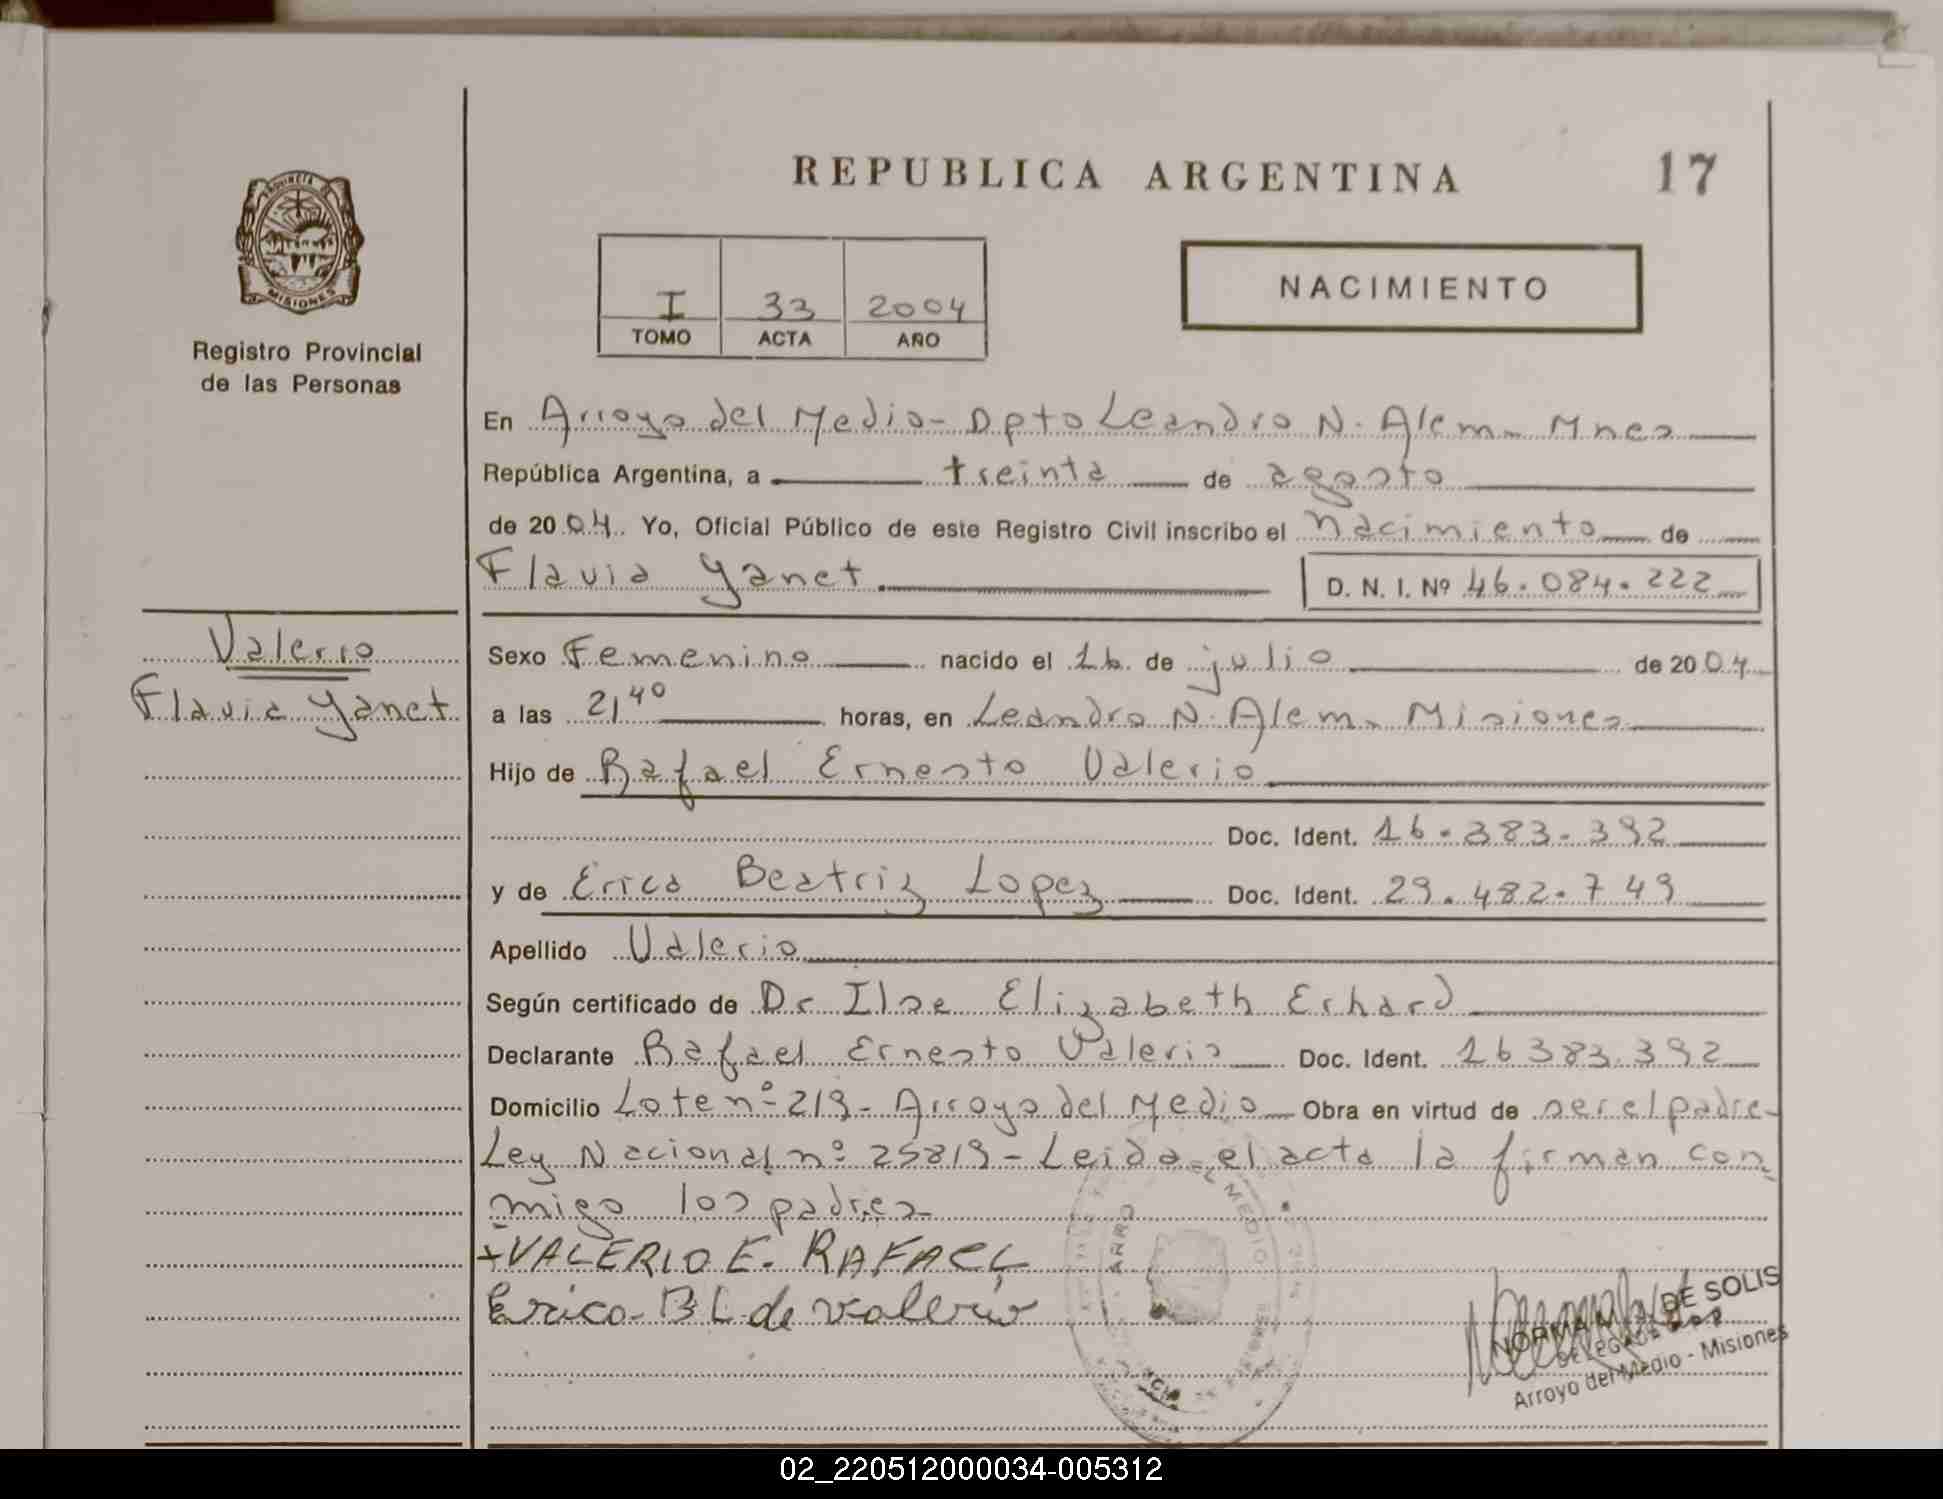 REPUBLICA ARGENTINA
17
PROVINCIA DE
MISIONES
Registro Provincial
de las Personas
I 33 2004
TOMO ACTA AÑO
NACIMIENTO
En Arroyo del Medio - Dpto Leandro N. Alem - Mnes
República Argentina, a treinta de agosto
de 2004. Yo, Oficial Público de este Registro Civil inscribo el Nacimiento de
Flavia Yanet D. N. I. Nº 46.084.222
Valerio
Flavia Yanet
Sexo Femenino nacido el 16 de julio de 2004
a las 21,40 horas, en Leandro N. Alem - Misiones
Hijo de Rafael Ernesto Valerio
Doc. Ident. 16.383.392
y de Erica Beatriz Lopez Doc. Ident. 29.482.749
Apellido Valerio
Según certificado de Dr Ilse Elizabeth Erhard
Declarante Rafael Ernesto Valerio Doc. Ident. 16383.392
Domicilio Lote nº 219 - Arroyo del Medio Obra en virtud de ser el padre -
Ley Nacional nº 25819 - Leida el acta la firman con
migo los padres -
+VALERIO E. RAFAEL
Erica B L de valerio
NORMA DE SOLIS
Arroyo del Medio - Misiones
02_220512000034-005312